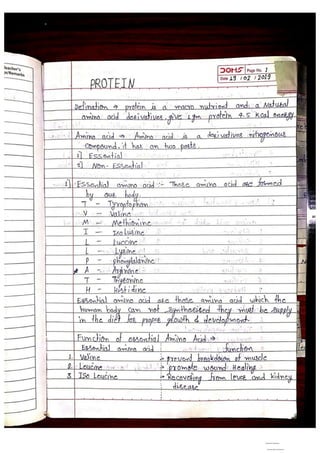 Teacher's
Sign/Remarks
DOMS Page No. 1
Date 19 / 02 / 2019
PROTEIN
Defination → protein is a macro nutrient and a Natural
amino acid derivatives. give 1gm protein 4.5 kcal energy.
Amino acid → Amino acid is a derivatives nitrogonous
compound. it has an two parts.
1) Essential
2) Non- Essential
1) Essential amino acid :- These amino acid are formed
by our body.
T - Tyroptophan
V - Valine
M - Methionine
I - Isoluline
L - Luccine
L - Lysine
P - phenylalanine
A - Arginine
T - Thyeonine
H - Histidine
Essential amino acid are those amino acid which the
human body can not synthesised they must be supply
in the dift for proper growth & development.
Function of essential Amino Acid →
Essential amino acid function
1. Valine - prevent breakdown of muscle
2. Leucine - promote wound Healing
3. Iso Leucine - Recovering from lever and kidney
disease